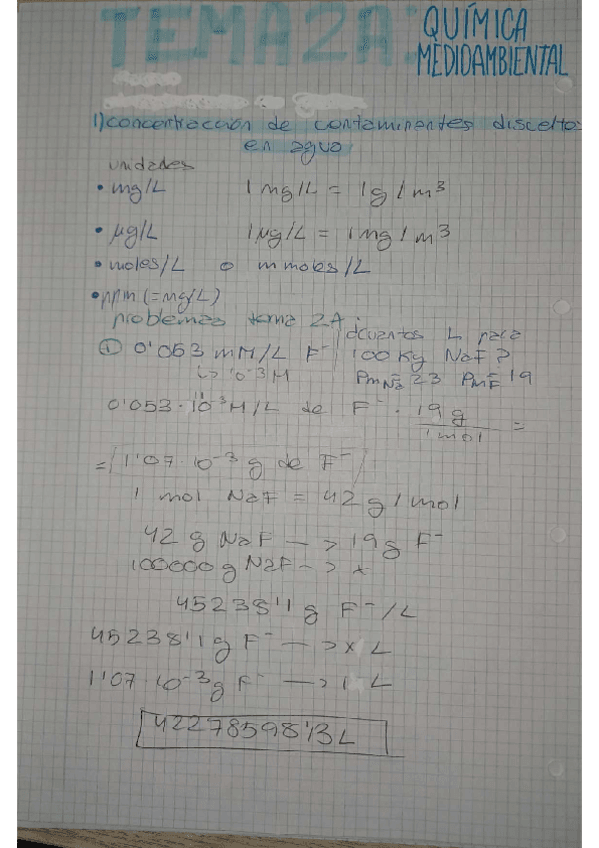 TEMA 2A:
QUÍMICA
MEDIOAMBIENTAL
1) concentración de contaminantes disceltos
en agua
unidades
• mg/L 1 mg/L = 1g/m³
• µg/L 1µg/L = 1mg/m³
• moles/L o mmoles/L
• ppm (=mg/L)
problemas tema 2A:
① 0'053 mM/L F⁻ / dcuantos L para
100 Kg NaF?
↳ 10⁻3M PmNa = 23 PmF = 19
0'053·10⁻³M/L de F⁻ · 19 g / 1 mol =
= /1'07·10⁻³ g de F⁻/
1 mol NaF = 42 g/mol
42 g NaF —> 19g F⁻
100000g NaF —> x
45238'1 g F⁻/L
45238'1g F⁻ —> x L
1'07·10⁻³g F⁻ —> 1 L
42278598'13 L